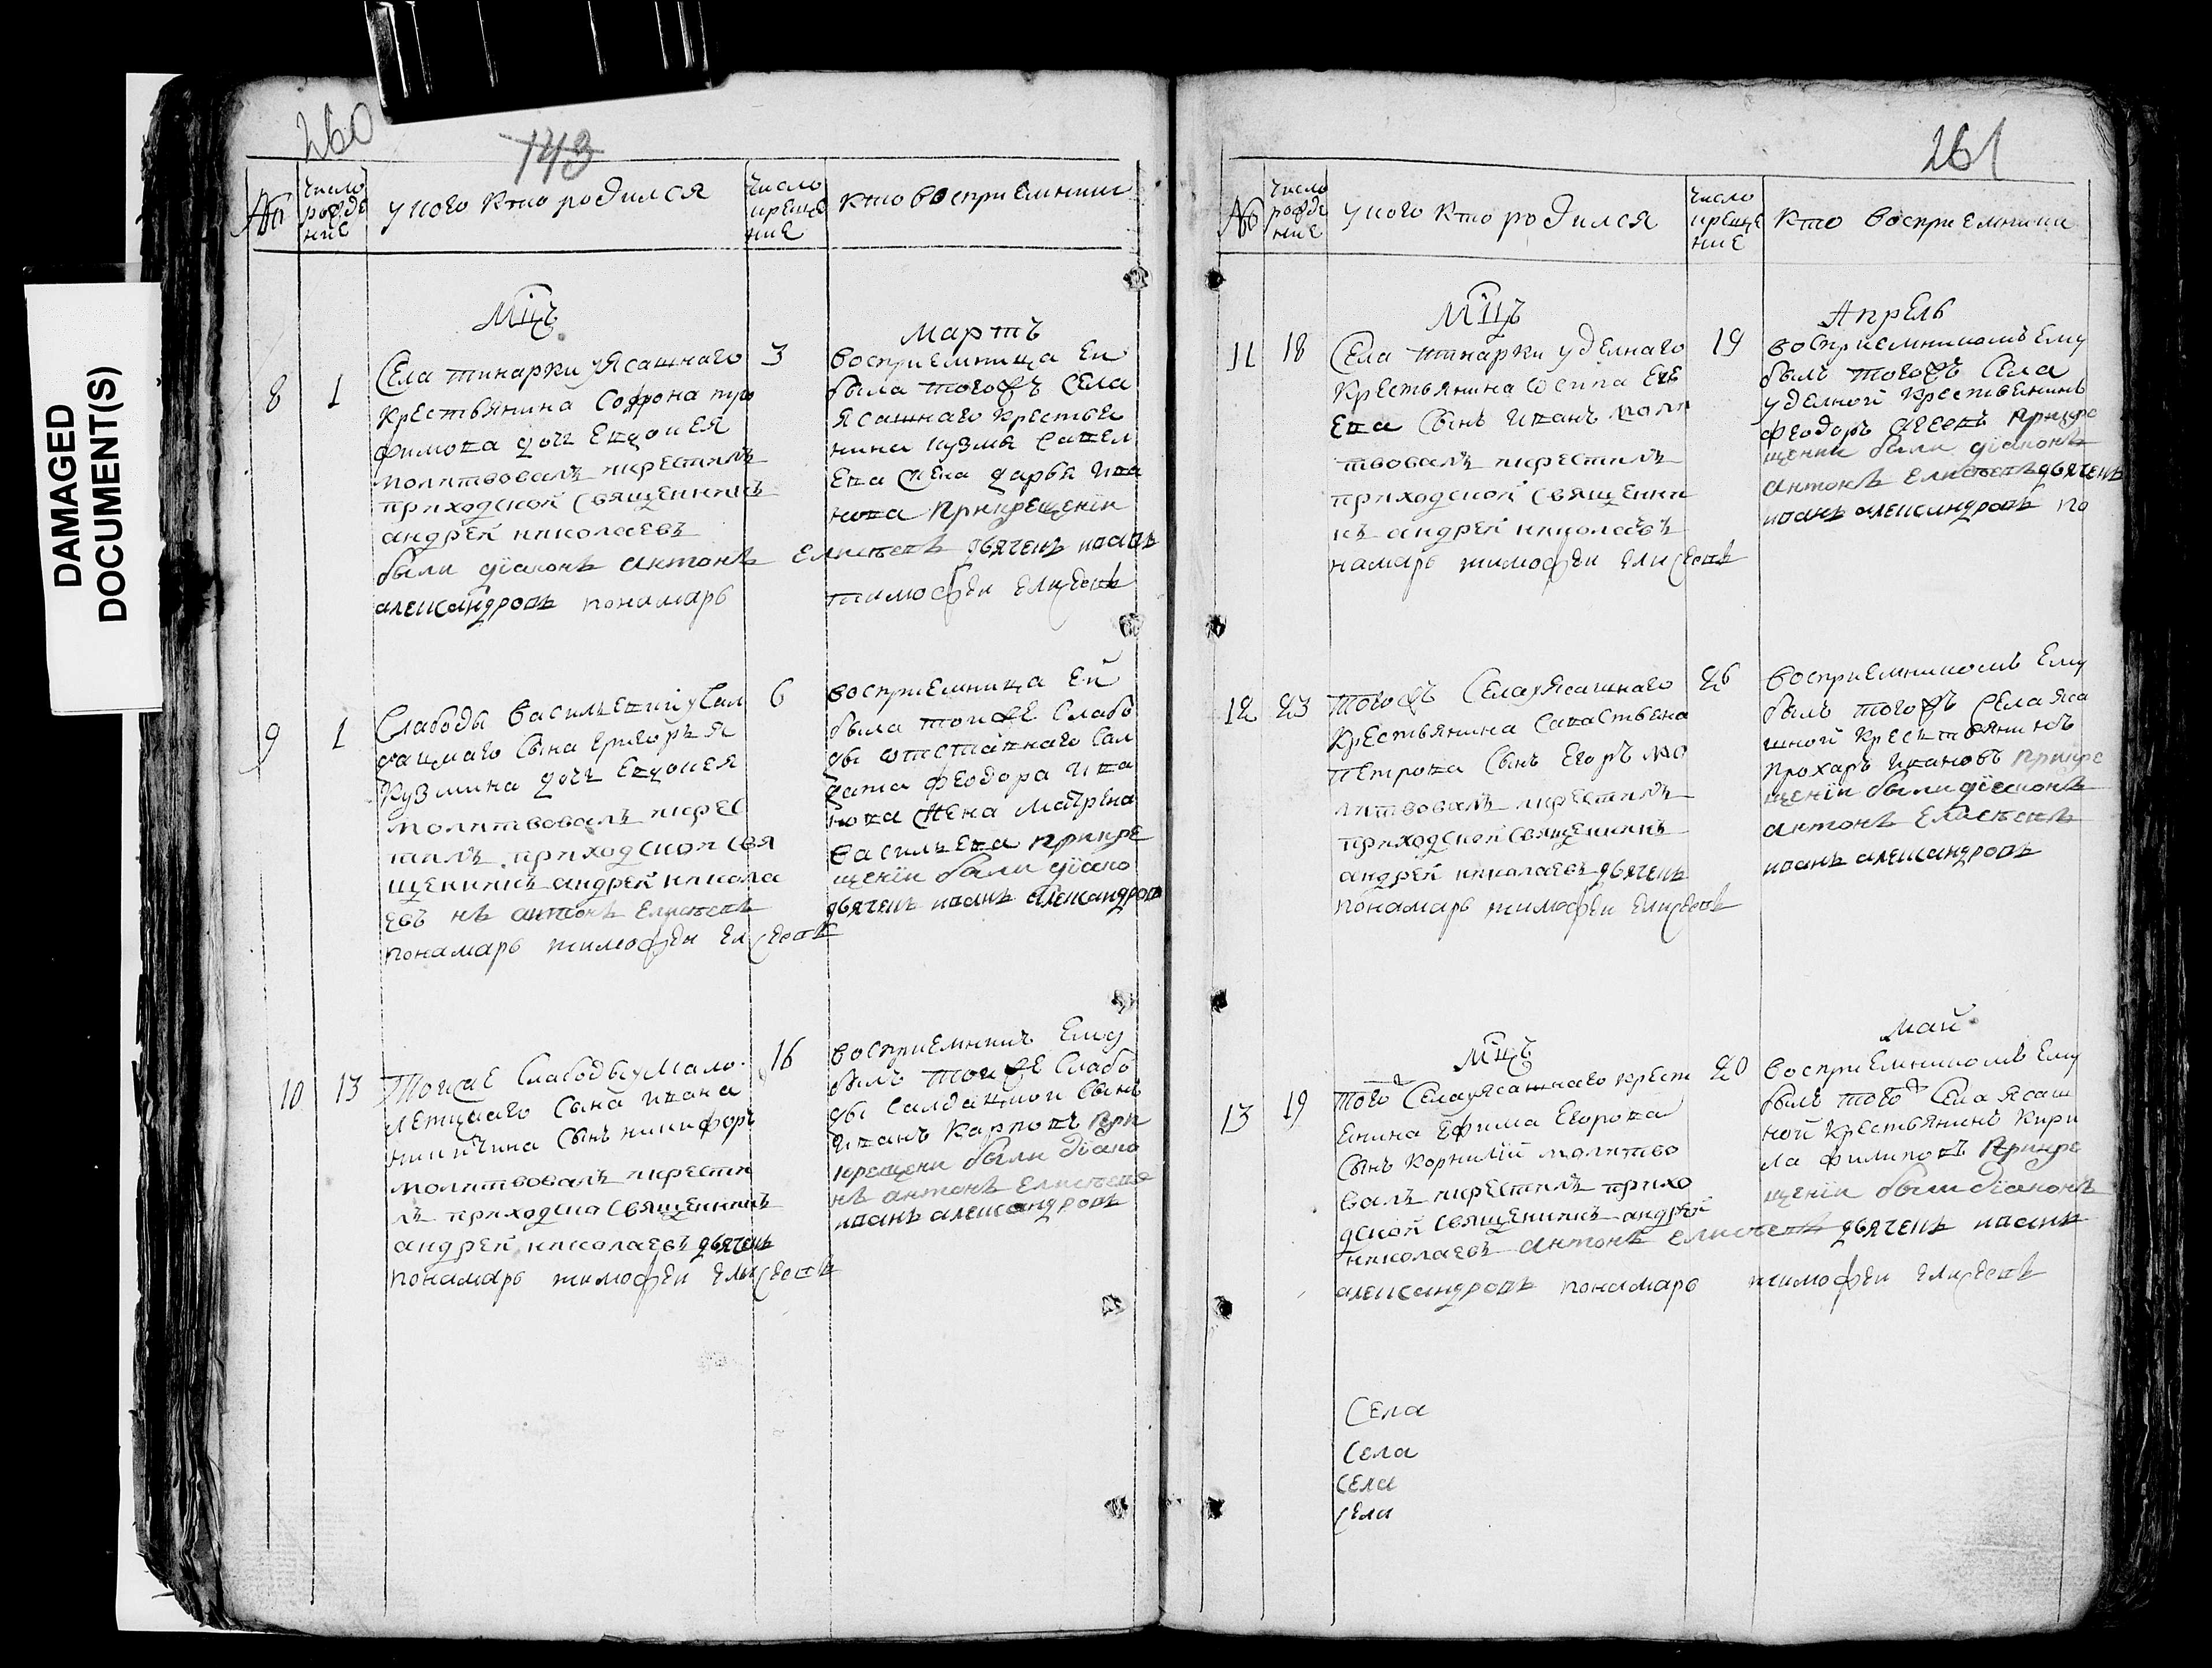 DAMAGED
DOCUMENT(S)
260
143
№
число рождение
у кого кто родился
число крещение
кто восприемники
Мцъ
Мартъ
8
1
Села тинарки у Ясашнаго
крестьянина Софрона тро
фимова дочь Евдокея
молитвовалъ икрестилъ
приходской священникъ
андрей николаевъ
были дїаконъ антонъ елисеевъ дьячекъ иванъ
александровъ понамарь тимофеи елисеевъ
3
восприемница Еи
была тогожъ Села
Ясашнаго крестья
нина кузмы савел
ева жена дарья ива
нова Прикрещенїи
9
1
Слабоды василъевкиуСал
дацкаго Сына григорья
кузмина дочь Евдокея
молитвовалъ икрес
тилъ приходскои свя
щенникъ андрей никола
евъ нъ антонъ елисеевъ
понамарь тимофеи елисеевъ
6
восприемница Ей
была тоиже Слабо
ды отставнаго Сал
дата феодора ива
нова жена матрена
васильева прикре
щенїи были дїако
дьячекъ иванъ александровъ
10
13
Тоиже СлабодыуМало
летцкаго Сына ивана
никитина Сынъ никифоръ
молитвовалъ икрести
лъ приходско священникъ
андрей николаевъ дьячекъ
понамарь тимофеи елисеевъ
16
восприемникъ Ему
былъ тоиже Слабо
ды Салдацкои Сынъ
иванъ карповъ при
крещени были дїако
нъ антонъ елисеевъ
иванъ александровъ
261
№
число рождение
у кого кто родился
число крещение
кто восприемники
Мцъ
Апрель
11
18
Села тинарки уделнаго
крестьянина Осипа
ева Сынъ иванъ моли
твовалъ икрестилъ
приходской священни
къ андрей николаевъ
намарь тимофеи елисеевъ
19
восприемникомъ Ему
былъ тогожъ Села
уделной крестьенинъ
феодоръ прикре
щении были дїаконъ
антонъ елисеевъ дьячекъ
иванъ александровъ по
12
23
тогожъ СелауЯсашнаго
крестьянина Савастьена
петрова Сынъ Егоръ мо
литвовалъ икрестилъ
приходской священникъ
андрей николаевъ дьячекъ
понамарь тимофеи елисеевъ
26
восприемникомъ Ему
былъ тогожъ Села яса
шной крестьянинъ
прохаръ ивановъ прикре
щенїи были дїаконъ
антонъ елисеевъ
иванъ александровъ
Мцъ
май
13
19
того СелауЯсашнаго крест
енина Ефима Егорова
Сынъ корнилїй молитво
валъ икрестилъ прихо
дской священникъ андрей
николаевъ антонъ елисеевъ дьячекъ иванъ
александровъ понамарь тимофеи елисеевъ
20
восприемникомъ Ему
былъ того Села ясаш
ной крестьянинъ кири
ла филиповъ прикре
щенїи были дїаконъ
Села
Села
Села
Села